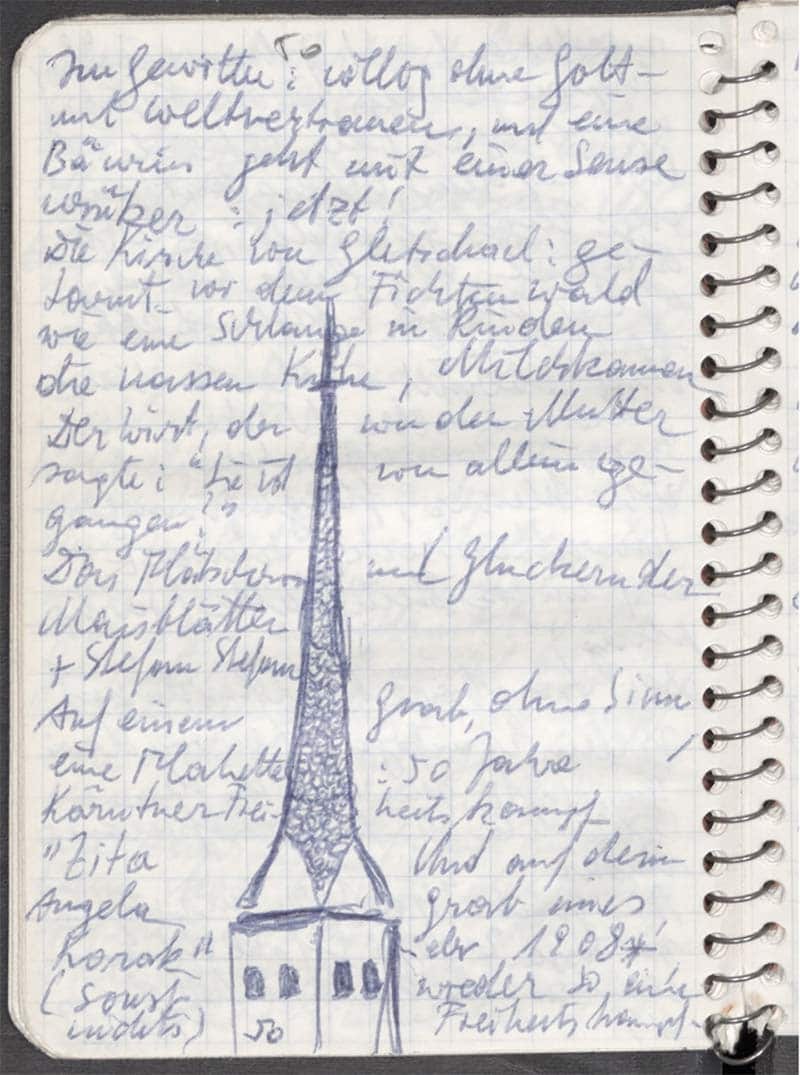 50
Im Gewitter : völlig ohne Gott–
mit Weltvertrauen, und eine
Bäurin geht mit einer Sense
vorüber : jetzt!
Die Kirche von : ge-
tarnt vor dem Fichtenwald
wie eine Schlange in Rinden
die nassen Kühe, Milchkannen
Der Wirt, der von der Mutter
sagte : "Sie ist von allein ge-
gangen!"
Das Plätschern und Gluckern der
Maisblätter
+ Stefan Stefan
Auf einem Grab, ohne Sinn
eine Plakette : 50 Jahre
Kärntner Freiheitskampf
"Zita
Angela
Korak"
(sonst
nichts)
Und auf dem
Grab eines,
der 1908*
wieder so ein
Freiheitskampf-
50